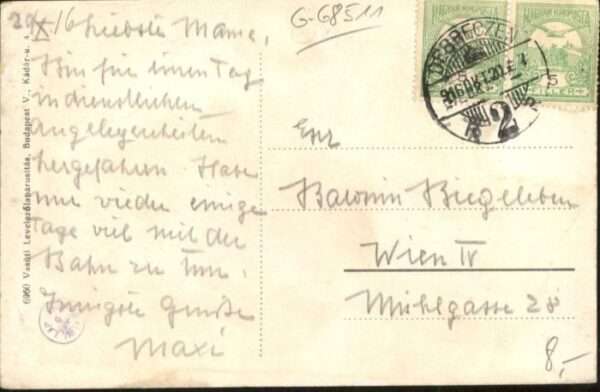 20/X 16 Liebste Mama,
Bin für einen Tag
in dienstlichen
Angelegenheiten
hergefahren. Habe
nur wieder einige
Tage viel mit der
Bahn zu tun.
Innigste Grüße
Maxi
G-68511
MAGYAR KIR. POSTA
MAGYAR KIR. POSTA
FILLÉR
DEBRECZEN
916 OKT. 20
2
Baronin Biegeleben
Wien IV
Mühlgasse 28
8,-
6960 Vasúti Levelezőlapárusítás, Budapest V., Kádár-u. 4